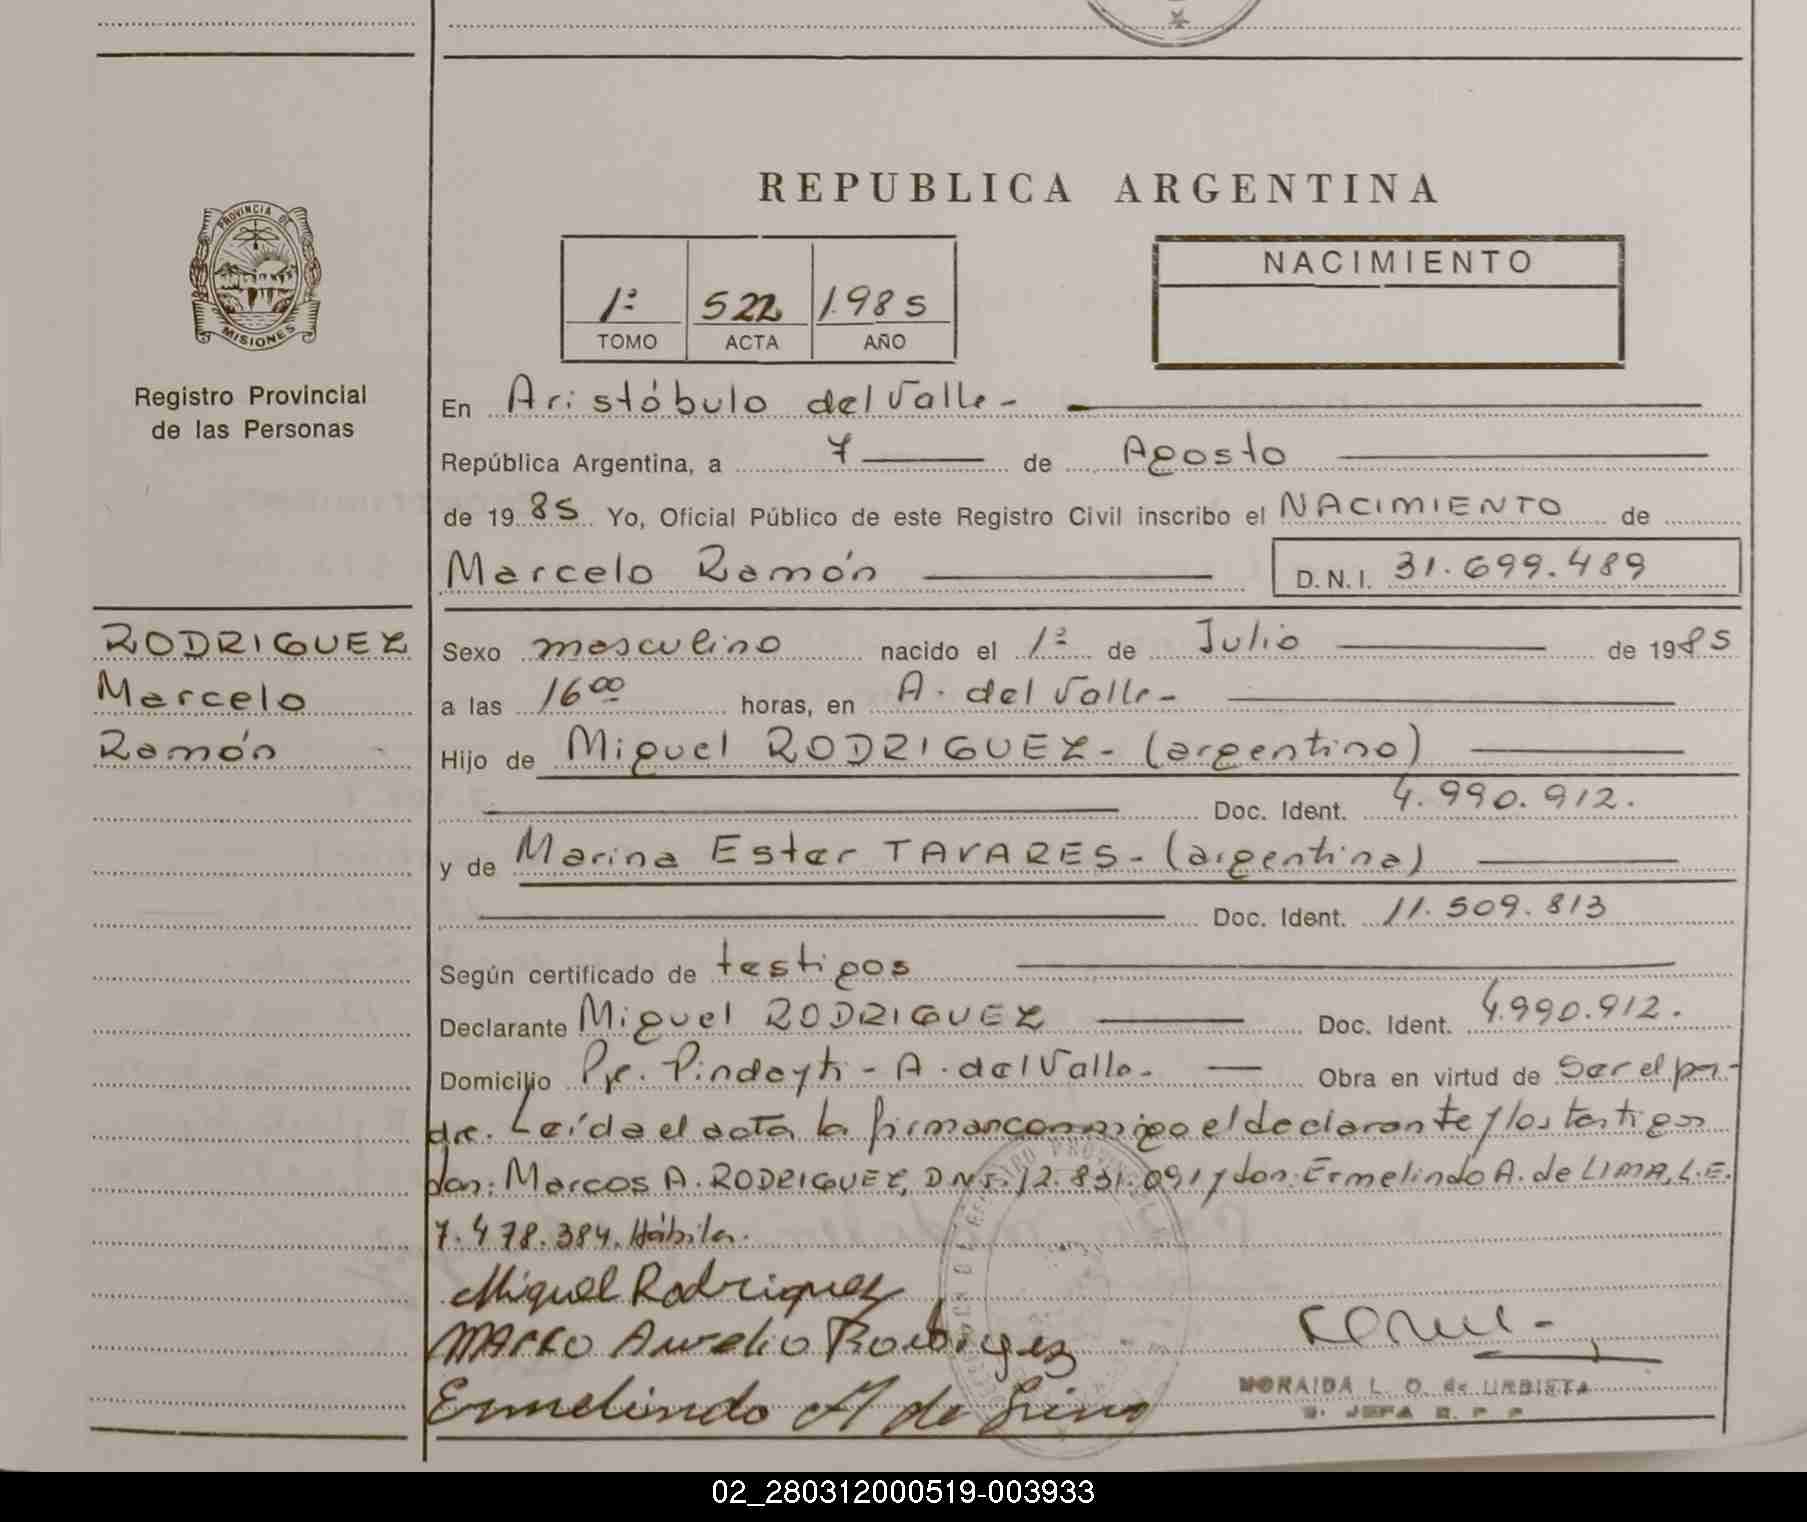 REPUBLICA ARGENTINA
PROVINCIA DE
MISIONES
Registro Provincial
de las Personas
1º 522 1985
TOMO ACTA AÑO
NACIMIENTO
En Aristóbulo del Valle -
República Argentina, a 7 de Agosto
de 1985 Yo, Oficial Público de este Registro Civil inscribo el NACIMIENTO de
Marcelo Ramón D.N.I. 31.699.489
RODRIGUEZ
Marcelo
Ramón
Sexo masculino nacido el 1º de Julio de 1985
a las 16 00 horas, en A. del Valle -
Hijo de Miguel RODRIGUEZ - (argentino)
Doc. Ident. 4.990.912.
y de Marina Ester TAVARES - (argentina)
Doc. Ident. 11.509.813
Según certificado de testigos
Declarante Miguel RODRIGUEZ Doc. Ident. 4.990.912.
Domicilio Pje. Pindayti - A. del Valle - Obra en virtud de Ser el pa-
dre. Leída el acta la firman conmigo el declarante y los testigos
don: Marcos A. RODRIGUEZ, D.N.I. 12.831.091 y don: Ermelindo A. de LIMA, L.E.
7.478.384. Hábiles.
Miguel Rodriguez
MARCO Aurelio Rodriguez
Ermelindo A de Lima
MORAIDA L. O. de URBISTA
JEFA R. P. P.
02_280312000519-003933